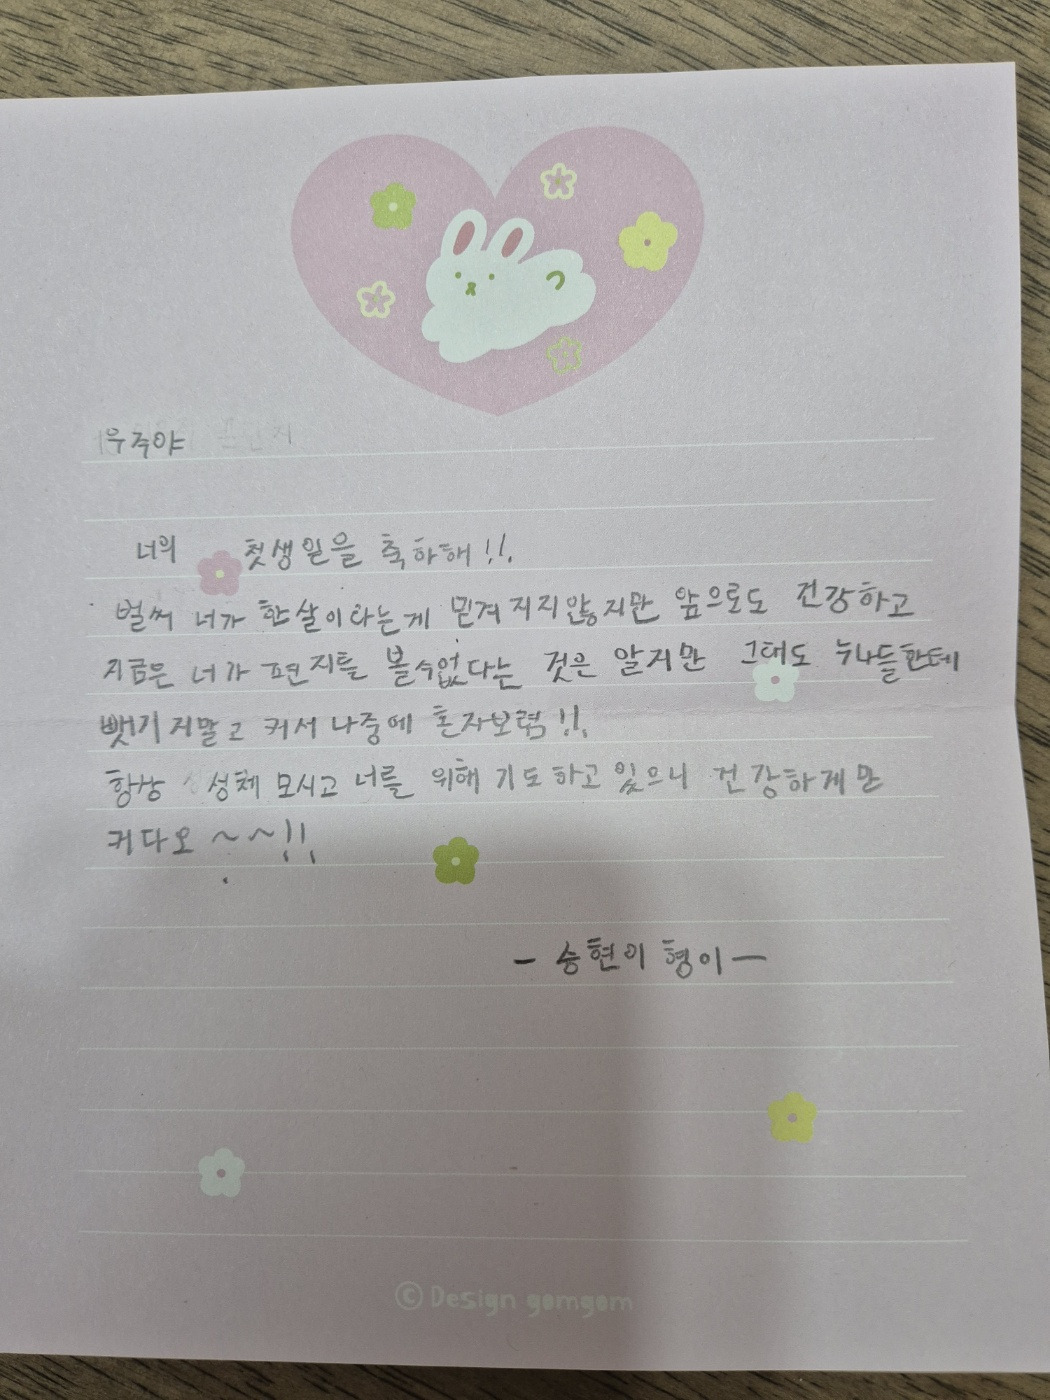 우주야
너의 첫생일을 축하해!!
벌써 너가 한살이라는게 믿겨지지않지만 앞으로도 건강하고
지금은 너가 편지를 볼수없다는 것은 알지만 그래도 누나들한테
뺏기지말고 커서 나중에 혼자보렴!!
항상 성체 모시고 너를 위해 기도하고 있으니 건강하게만
커다오~~!!
- 승현이 형이 -
© Design gomgom